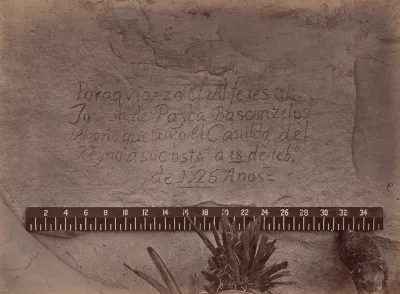 Por aqui pazo el Alferes Dn
Joseph de Payba Basconzelos
el año que trujo el Cavildo del
Reyno a su costa a 18 de feb°
de 1726 Años
2 4 6 8 10 12 14 16 18 20 22 24 26 28 30 32 34